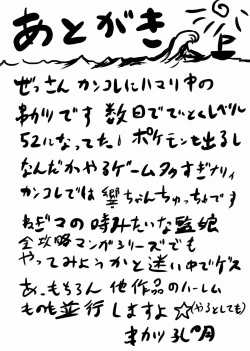 あとがき
ぜっさんカンコレにハマリ中の
串かつです 数日でていとくレベル
52になってた! ポケモンも出るし
なんだかやるゲーム多すぎナリィ
カンコレでは響ちゃんちゅっちゅです
ネギマの時みたいな監娘
全攻略マンガシリーズでも
やってみようかと迷い中でゲス
あ、もちろん他作品のハーレム
ものも並行しますよ☆(やるとしても)
串かつ
の月